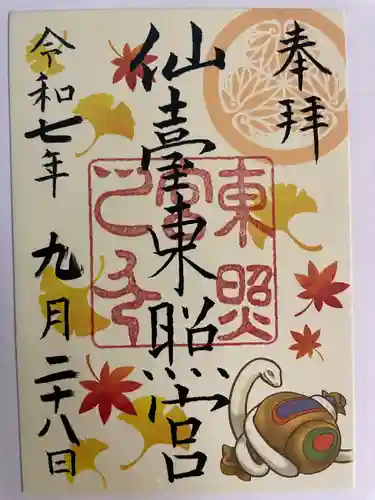 奉拝
仙臺東照宮
東照宮之印
令和七年
九月二十八日